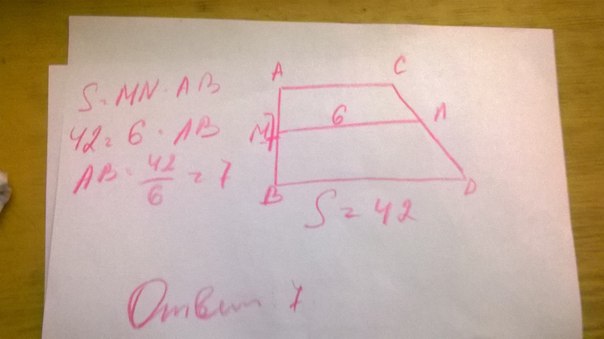 S = MN · AB
42 = 6 · AB
AB = 42/6 = 7
A
C
M
6
B
D
S = 42
Ответ: 7